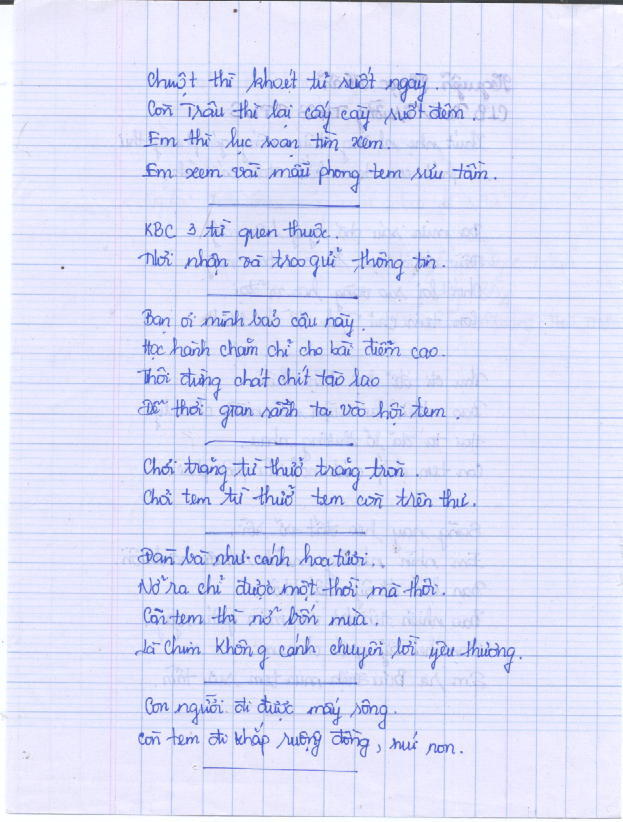 Chuột thì khoét tủ suốt ngày.
Còn Trâu thì lại cấy cày suốt đêm.
Em thì lục soạn tìm xem.
Em xem vài mẫu phong tem sưu tầm.
KBC 3 từ quen thuộc.
Nơi nhận và trao gửi thông tin.
Bạn ơi mình bảo câu này.
Học hành chăm chỉ cho bài điểm cao.
Thôi đừng chát chít tào lao
Để thời gian sảnh ta vào hội tem.
Chơi trăng từ thưở trăng tròn.
Chơi tem từ thưở tem còn trên thư.
Đàn bà như cánh hoa tươi.
Nở ra chỉ được một thời mà thôi.
Còn tem thì nở bốn mùa.
Là chim không cánh chuyên lời yêu thương.
Con người đi được mấy sông.
Còn tem đi khắp ruộng đồng, núi non.